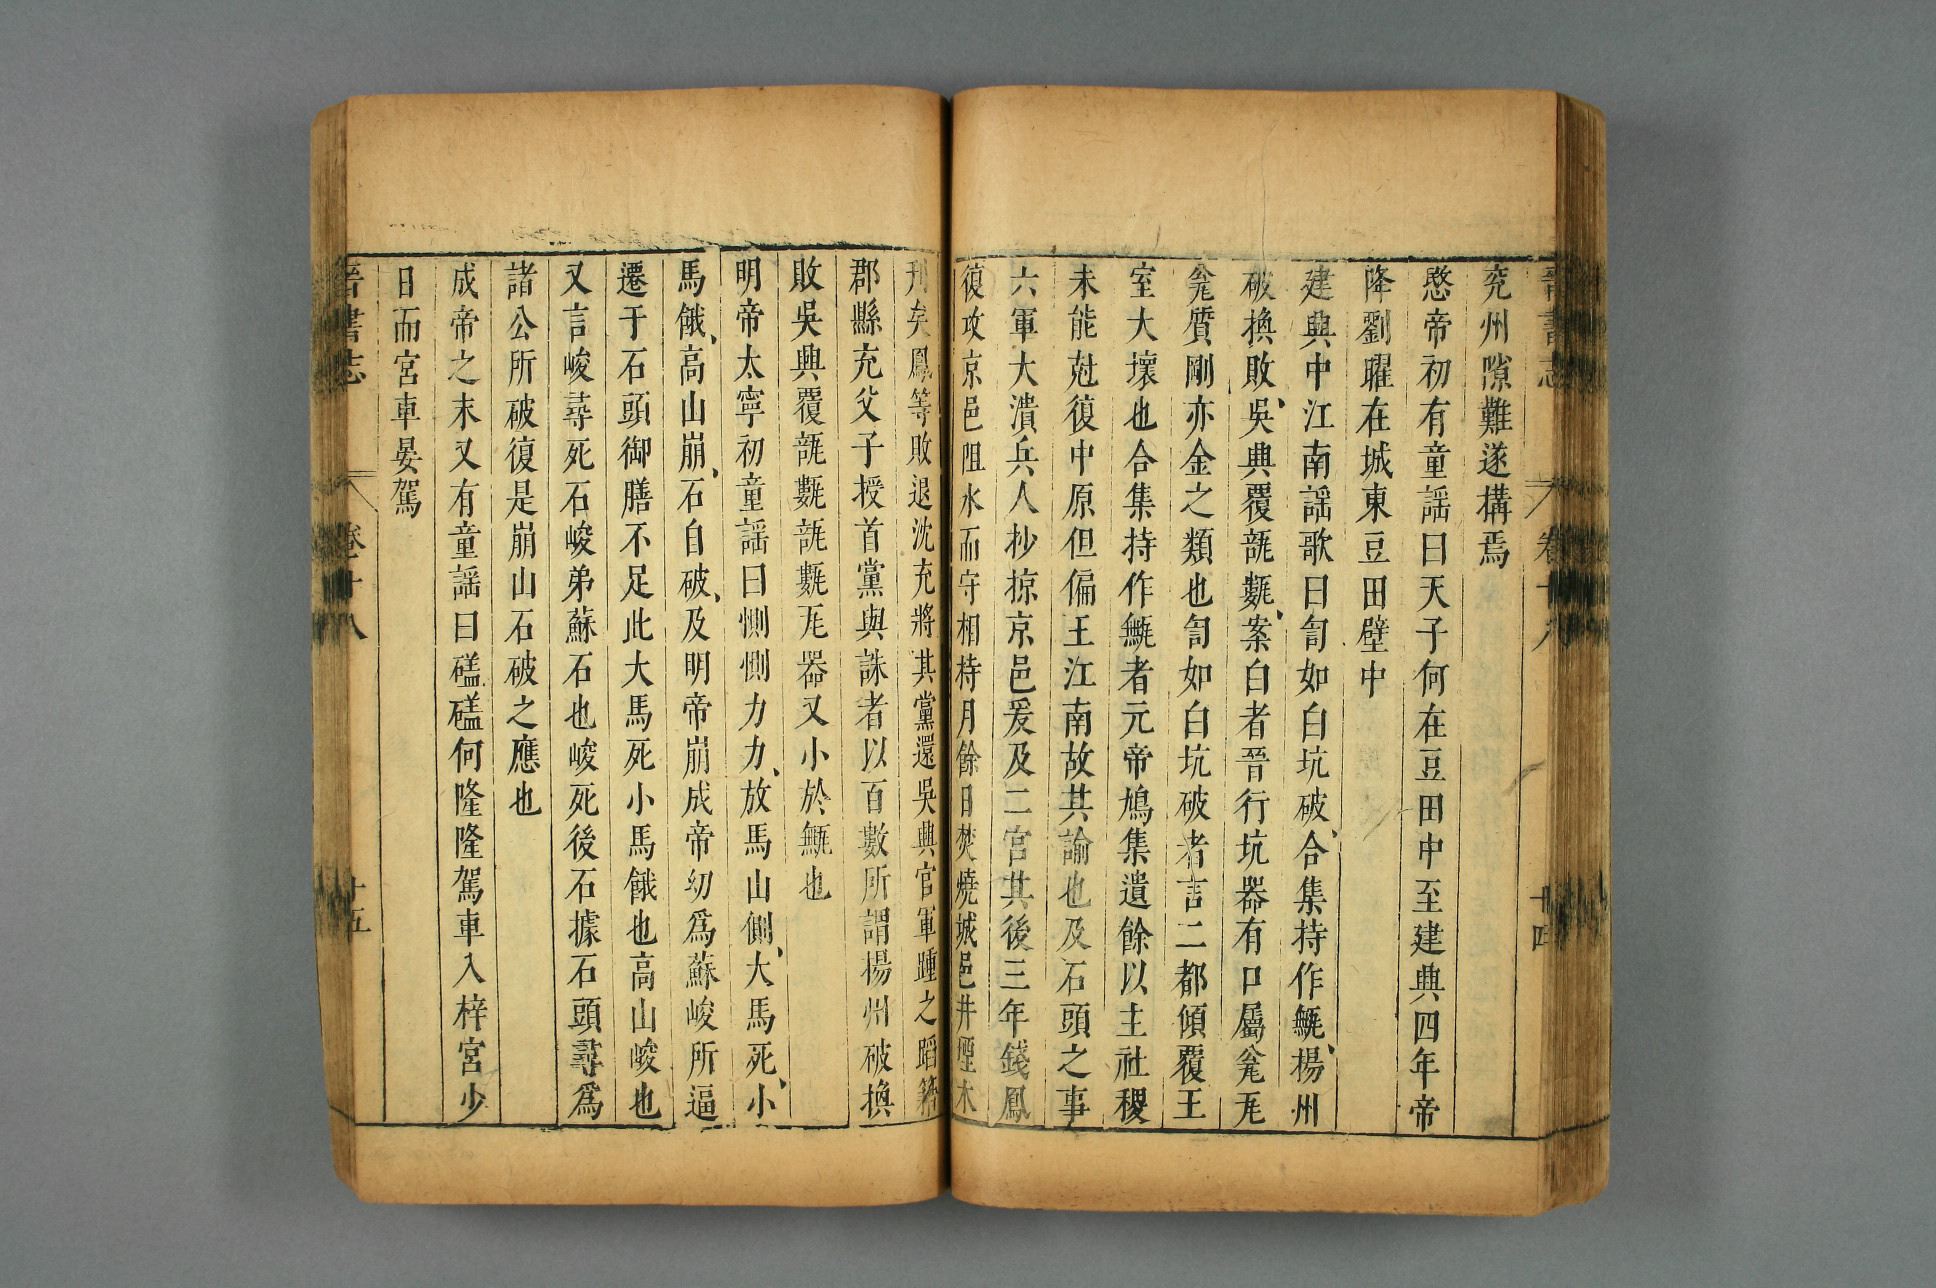 晉書志 卷十八 十四
兖州隙難遂構焉
愍帝初有童謡曰天子何在豆田中至建興四年帝
降劉曜在城東豆田壁中
建興中江南謡歌曰訇如白坑破合集持作甒揚州
破換敗吳興覆瓿甊案白者晉行坑器有口屬瓮瓦
瓮質剛亦金之類也訇如白坑破者言二都傾覆王
室大壞也合集持作甒者元帝鳩集遺餘以主社稷
未能尅復中原但偏王江南故其諭也及石頭之事
六軍大潰兵人抄掠京邑爰及二宮其後三年錢鳳
復攻京邑阻水而守相持月餘日焚燒城邑井堙木
刊矣鳳等敗退沈充將其黨還吳興官軍踵之蹈籍
郡縣充父子授首黨與誅者以百數所謂揚州破換
敗吳興覆瓿甊瓿甊瓦器又小於甒也
明帝太寧初童謡曰惻惻力力放馬山側大馬死小
馬餓高山崩石自破及明帝崩成帝幼爲蘇峻所逼
遷于石頭御膳不足此大馬死小馬餓也高山峻也
又言峻尋死石峻弟蘇石也峻死後石據石頭尋爲
諸公所破復是崩山石破之應也
成帝之末又有童謡曰磕磕何隆隆駕車入梓宮少
日而宮車晏駕
晉書志 卷十八 十五